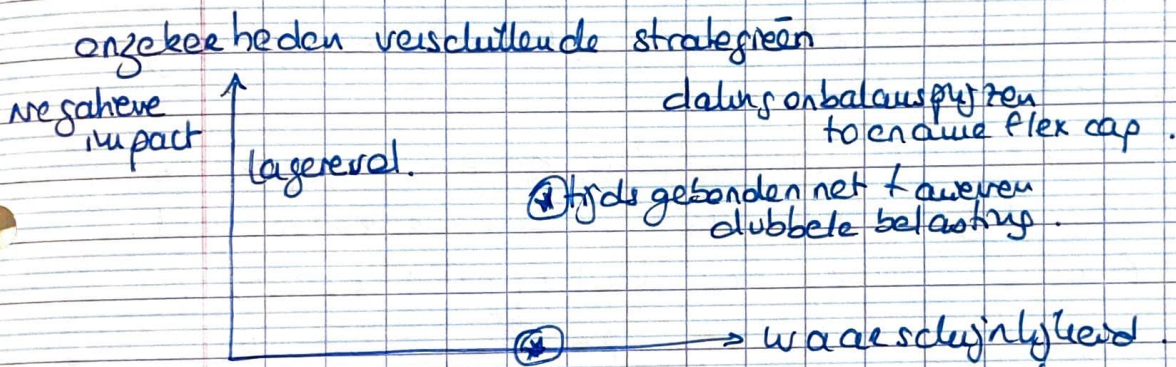 onzekerheden verschillende strategieën
negatieve
impact
lagere vol.
daling onbalansprijzen
toename flex cap.
tijdsgebonden net tarieven
dubbele belasting.
waarschijnlijkheid.